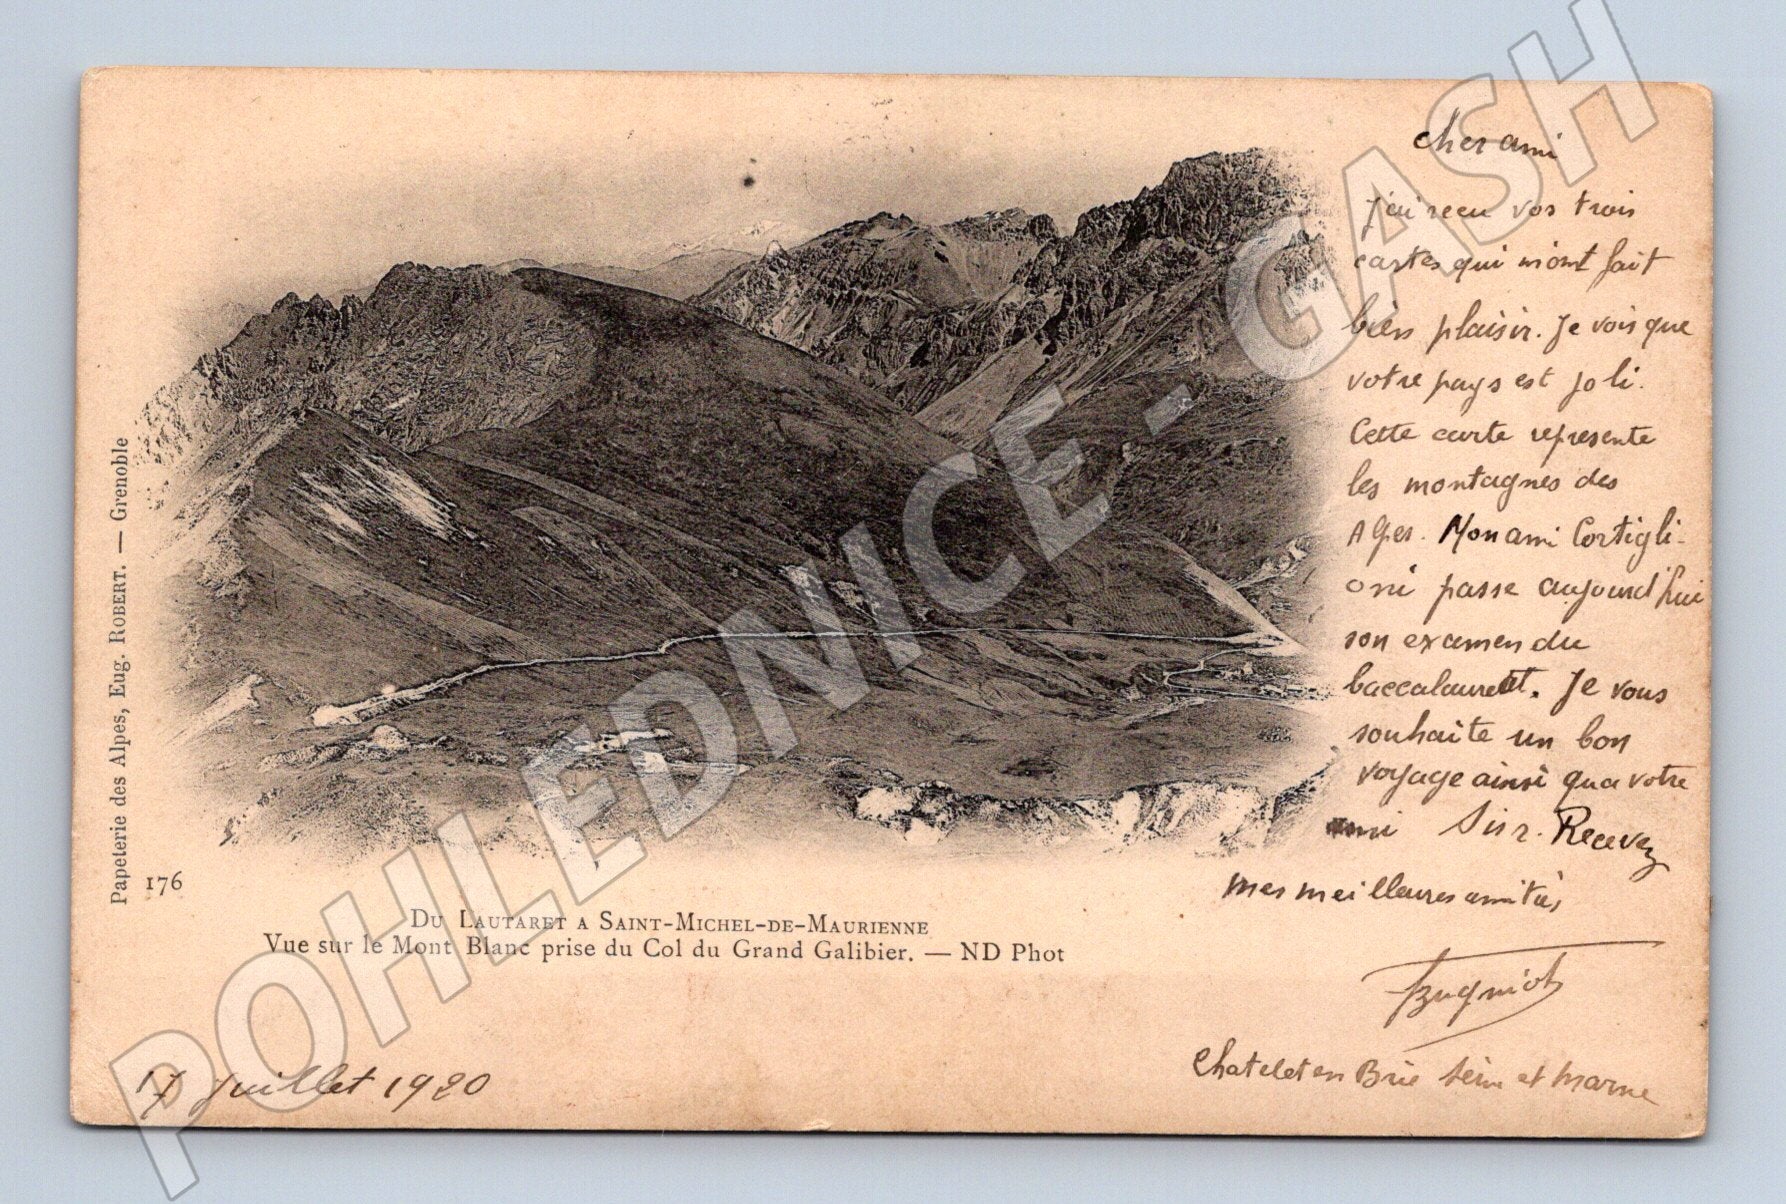 cher ami
J'ai recu vos trois
cartes qui m'ont fait
bien plaisir. Je vois que
votre pays est joli.
Cette carte represente
les montagnes des
Alpes. Mon ami Cortigli-
oni passe aujourd'hui
son examen du
baccalaureat. Je vous
souhaite un bon
voyage ainsi qua votre
ami Recevez
mes meilleures amitiés
Chatelet en Brie Seine et Marne
Papeterie des Alpes, Eug. ROBERT. — Grenoble
176
DU LAUTARET A SAINT-MICHEL-DE-MAURIENNE
Vue sur le Mont Blanc prise du Col du Grand Galibier. — ND Phot
17 Juillet 1920
POHLEDNICE - GASH